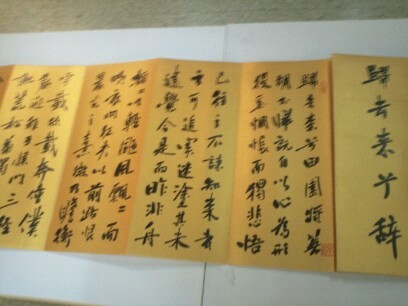 歸去来兮辞
歸去来兮田園將蕪
胡不歸既自以心為形
役奚惆悵而獨悲悟
已往之不諫知来者
之可追实迷塗其未
遠覺今是而昨非舟
遙々以輕颺風飄々而
吹衣问征夫以前路恨
晨光之熹微乃瞻衡
宇載欣載奔僮僕
歡迎稚子候門三徑
就荒松菊